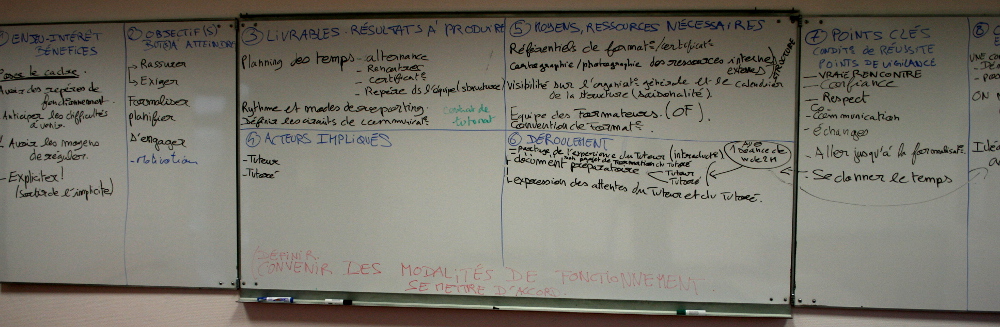 ① ENJEU-INTÉRÊT
BÉNÉFICES
Poser le cadre.
Avoir des repères de
fonctionnement.
Anticiper les difficultés
à venir.
Avoir les moyens
de réguler.
- Expliciter!
(sortir de l'implicite)
② OBJECTIF(S)
BUT(S) À ATTEINDRE
Rassurer
Exiger
Formaliser
planifier
S'engager
③ LIVRABLES - RÉSULTATS À PRODUIRE
Planning des temps - alternance
- Rencontres
- certificats
- Repères de l'équipe (structure)
Rythme et modes de reporting.
Définir les circuits de communicat°
contrat de
tutorat
④ ACTEURS IMPLIQUÉS
- Tuteur
- Tutoré
⑤ MOYENS, RESSOURCES NÉCESSAIRES
Référentiels de formato/certificato
Cartographie/photographie des ressources internes
externes
STRUCTURE
Visibilité sur l'organisat° générale et le calendrier
de la structure (saisonalité).
Equipe des Formateurs. (OF)
Convention de Format°.
⑥ DÉROULEMENT
- partage de l'expérience du Tuteur (introductive)
- document préparatoire
Tuteur
Tutoré
- expression des attentes du Tuteur et du Tutoré.
1 séance de
de 2H
⑦ POINTS CLÉS
CONDITO DE RÉUSSITE
POINTS DE VIGILANCE
- VRAIE RENCONTRE
- Confiance
- Respect
- Communication
- Échanges
- Aller jusqu'à la formalisat°.
- Se donner le temps
⑧
DÉFINIR
CONVENIR LES MODALITÉS DE FONCTIONNEMENT.
SE METTRE D'ACCORD.